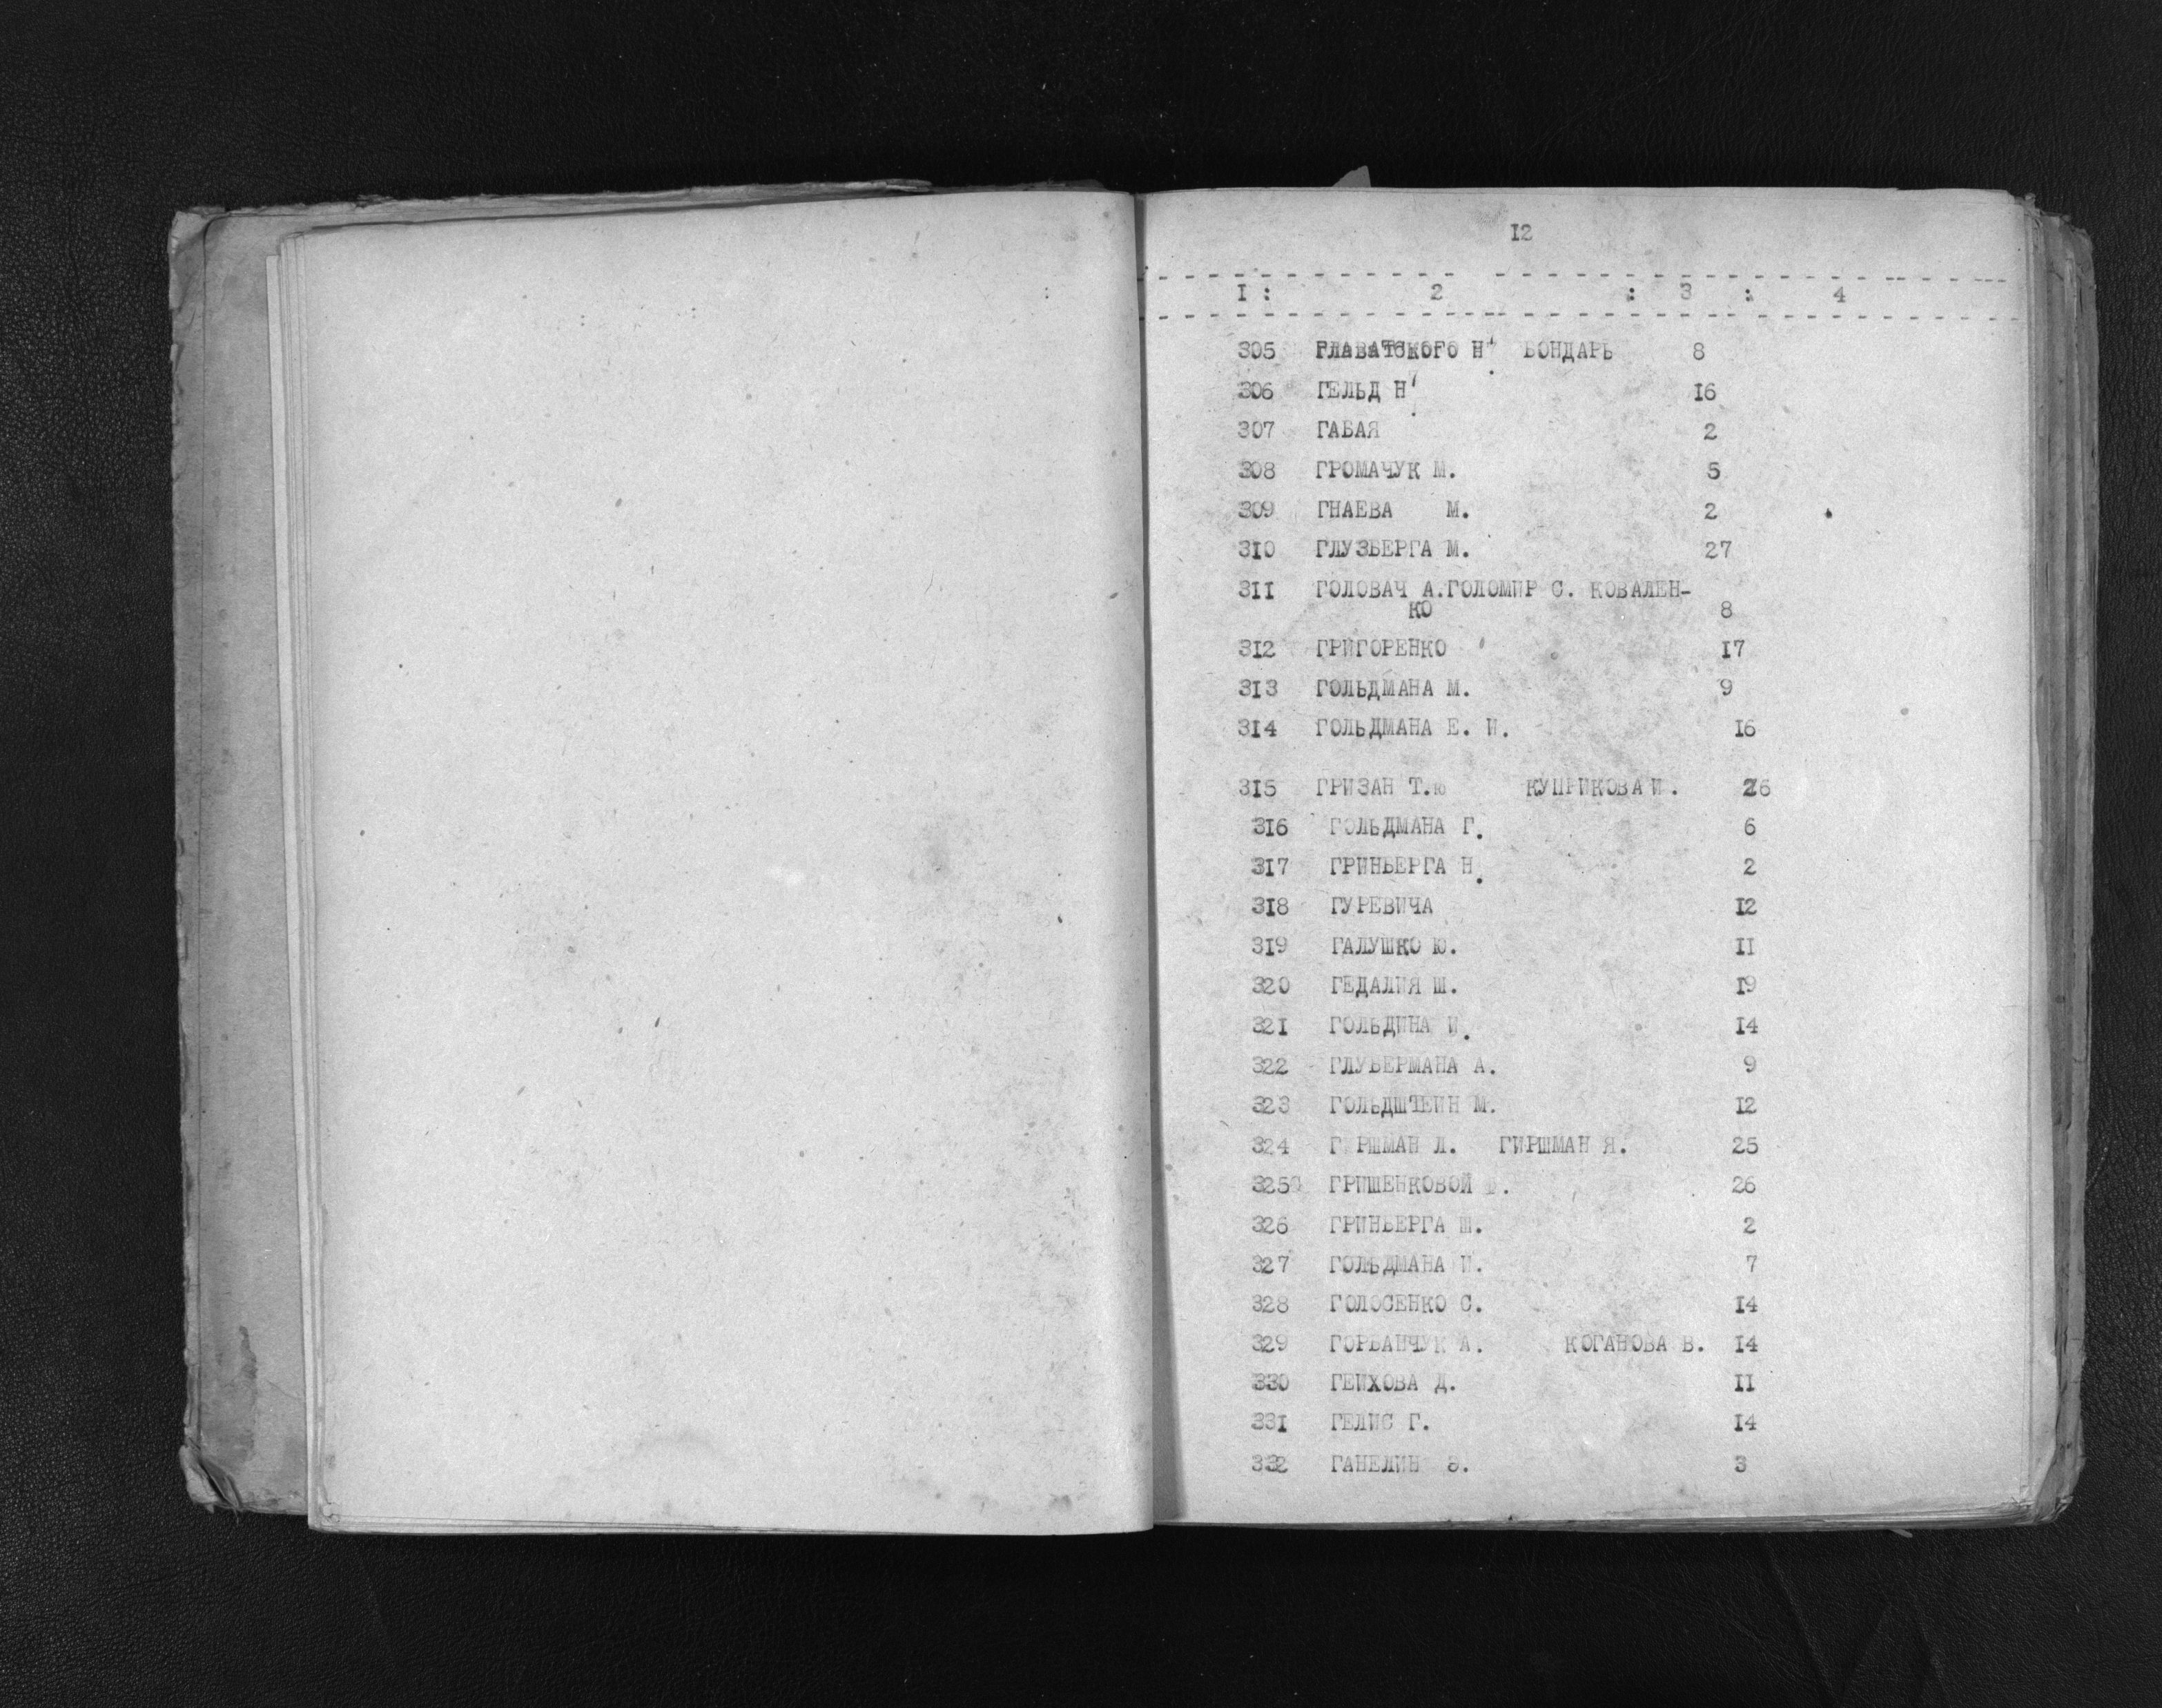 12
1 : 2 : 3 : 4
305 ГЛАВАТСКОГО Н БОНДАРЬ 8
306 ГЕЛЬД Н 16
307 ГАБАЯ 2
308 ГРОМАЧУК М. 5
309 ГНАЕВА М. 2
310 ГЛУЗБЕРГА М. 27
311 ГОЛОВАЧ А.ГОЛОМИР С. КОВАЛЕН-
КО 8
312 ГРИГОРЕНКО 17
313 ГОЛЬДМАНА М. 9
314 ГОЛЬДМАНА Е. И. 16
315 ГРИЗАН Т.ю КУПРИКОВА И. 26
316 ГОЛЬДМАНА Г. 6
317 ГРИНБЕРГА Н. 2
318 ГУРЕВИЧА 12
319 ГАЛУШКО Ю. 11
320 ГЕДАЛИЯ Ш. 19
321 ГОЛЬДИНА И. 14
322 ГЛУБЕРМАНА А. 9
323 ГОЛЬДШТЕИН М. 12
324 ГИРШМАН Л. ГИРШМАН Я. 25
325 ГРИШЕНКОВОЙ 26
326 ГРИНБЕРГА Ш. 2
327 ГОЛЬДМАНА И. 7
328 ГОЛОСЕНКО С. 14
329 ГОРБАНЧУК А. КОГАНОВА В. 14
330 ГЕИХОВА Д. 11
331 ГЕЛИС Г. 14
332 ГАНЕЛИН Э. 3